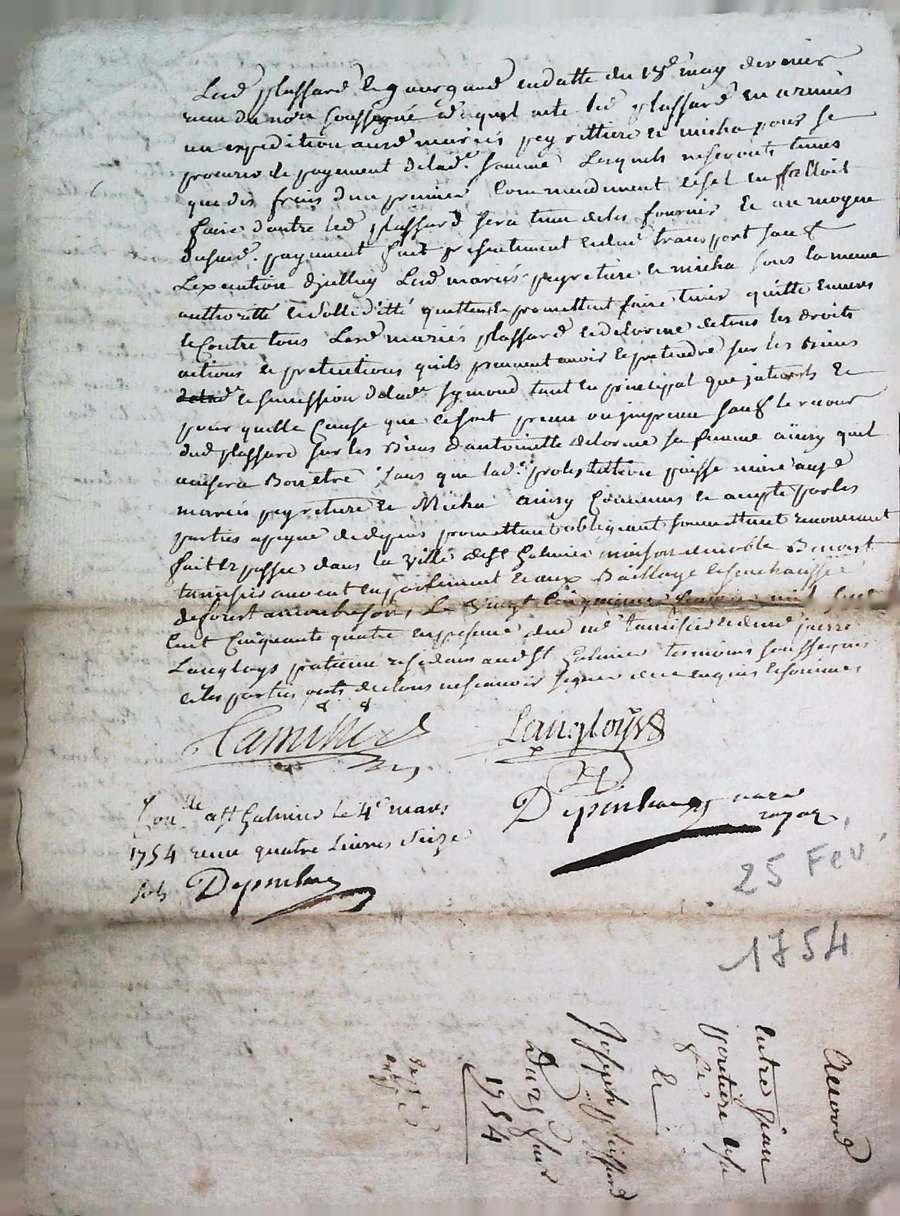 Led. plassard le gourgand en datte du 18e may dernier
recu du no.re soussigné duquel acte led. plassard en a remis
un expedition auxd. mariés peyrettiere et micha pour se
procurer le payement de lad. somme Lesquels ne seronts tenus
que des frais d'un premier Commendement et sil en falloit
faire d'autre led. plassard sera tenu de les fournir Et au moyen
dususd. payement fait presentement transport sauf
L'execution d'jcelluy Lesd. mariés peyretiere et micha sous la meme
authorité quittent et promettent faire tenir quitte envers
et Contre tous Lesd. mariés plassard et delorme de tous les droits
actions et pretentions quils peuvent avoir et pretendre sur les Biens
et succession de lad. Symond tant en principal que jnterets Et
pour quelle Cause que ce soit preveu ou jmpreveu sauf le recour
dud. plassard sur les Biens d'antoinette delorme sa femme ainsy quil
avisera Bon etre sans que lad. protestation puisse nuire auxd.
mariés peyretiere et Micha ainsy Convenus et accepté par les
parties a peyne de depens promettant obligeant soumettant renonceant
fait et passé dans la ville de st Galmier maison de noble Benoist
tamisier avocat en parlement et aux Baillage et senechaussée
de forest a montbrison, Le vingt Cinquieme fevrier mil sept
Cent Cinquante quatre en presence dud. me tamisier et de me pierre
Langloys praticien residans aud. st Galmier temoins soussignés
et les parties onts declarés ne scavoir signer de ce enquis et sommés
Tamisier
Langloys
Con.lle a st Galmier Le 4e mars
1754 receu quatre Livres seize
sols
no.re
royal
25 Fev
1754
Accord
Entre jean
peretiere
Et
Joseph plassard
Du 25 fevr
1754